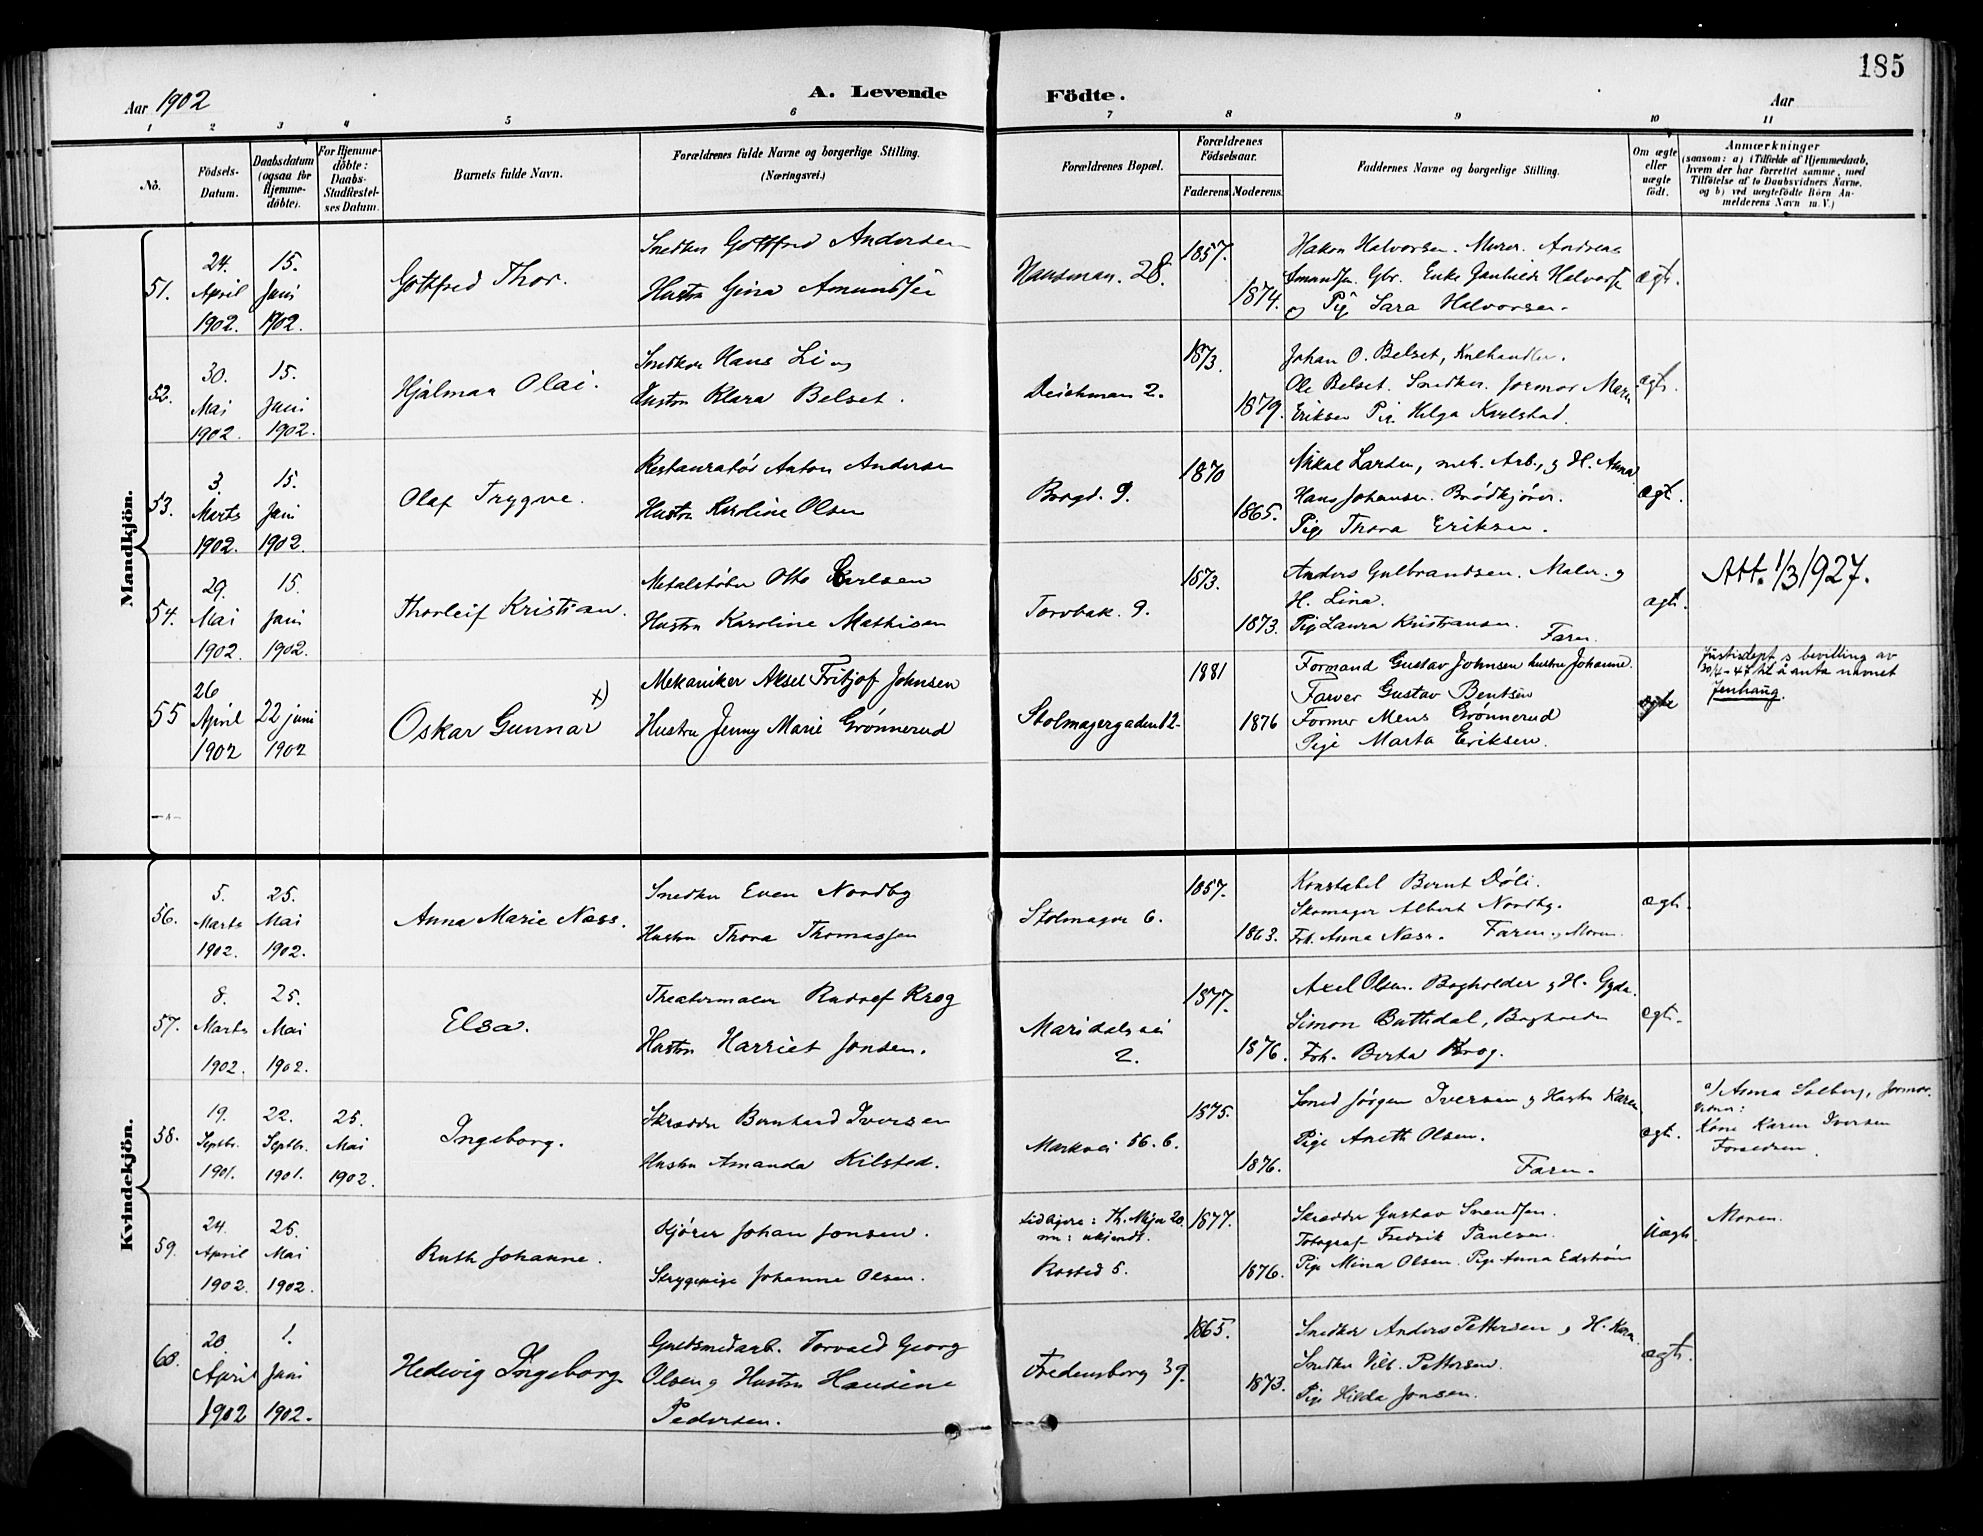 185
Aar 1902
A. Levende
Födte.
Aar
1 2 3 4 5 6 7 8 9 10 11
No.
Födsels-
Datum.
Daabsdatum
(ogsaa for
Hjemme-
döbte).
For Hjemme-
döbte:
Daabs-
Stadfæstel-
ses Datum.
Barnets fulde Navn.
Forældrenes fulde Navne og borgerlige Stilling.
(Næringsvei.)
Forældrenes Bopæl.
Forældrenes
Födselsaar.
Faderens. Moderens.
Faddernes Navne og borgerlige Stilling.
Om ægte
eller
uægte
født.
Anmærkninger
(saasom: a) i Tilfælde af Hjemmedaab,
hvem der har forrettet samme, med
Tilföielse af to Daabsvidners Navne,
og b) ved uægtefödte Börn An-
melderens Navn m. V.)
Mandkjön.
51.
24.
April
1902.
15.
Juni
1902.
Gottfred Thor.
Snedker Gottfred Andersen
Hustru Gina Amundsen
Hausman. 28.
1857.
1874.
Hakon Halvorsen. Murer. Andreas
Amandsen Gbr. Enke Gunhilde Halvorse
og Pig Sara Halvorsen.
ægt.
52.
30.
Mai
1902.
15.
Juni
1902.
Hjalmar Olai.
Snedker Hans Li og
Hustru Klara Belset.
Deichman 2.
1873.
1879.
Johan O. Belset, Kulhandler.
Ole Belset. Snedker. Formor Maren
Eriksen Pig. Helga Karlstad.
ægt.
53.
3.
Marts
1902.
15.
Juni
1902.
Olaf Trygve.
Restauratör Anton Andersen
Hustru Karoline Olsen
Borgd. 9.
1870
1865.
Nikal Larsen, mek. Arb., og H. Anna
Hans Johansen. Brödkjörer.
Pig Thora Eriksen.
ægt.
54.
29.
Mai
1902.
15.
Juni
1902.
Thorleif Kristian.
Metalstøber Otto Karlsen
Hustru Karoline Mathisen
Torvbak. 9.
1873.
1873.
Anders Gulbrandsen. Maler. og
H. Lina.
Pig Laura Kristiansen. Faren.
ægt.
Att. 1/3 1927.
55
26
April
1902
22 juni
1902
Oskar Gunnar x)
Mekaniker Aksel Fritjof Johnsen
Hustru Jenny Marie Grönnerud
Stolmagergaden 12
1881
1876
Formand Gustav Johnsen hustru Johanne.
Farver Gustav Bentsen
Former Mens Grönnerud
Pige Marta Eriksen.
ægte
Justisdept s bevilling av
30/4-47 til å anta navnet
Jenhaug.
Kvindekjön.
56.
5.
Marts
1902.
25.
Mai
1902.
Anna Marie Næss.
Snedker Even Nordby
Hustru Thora Thomassen
Stolmager 6.
1857.
1863.
Konstabel Bernt Döli.
Skomager Albert Nordby.
Frk. Anna Næss. Faren og Moren.
ægt.
57.
8.
Marts
1902.
25.
Mai
1902.
Elsa.
Theatermaler Rudolf Krog
Hustru Harriet Jonsen.
Maridalsvei
2.
1877.
1876.
Axel Olsen. Bogholder og H. Gyda.
Simon Battsdal, Bogholder
Frk. Berta Krog.
ægt.
58.
19.
Septbr.
1901.
22.
Septbr.
1901.
25.
Mai
1902.
Ingeborg.
Skrædder Bernhard Iversen
Hustru Amanda Kilsted.
Markvei 56. 6.
1875.
1876.
Smed Jörgen Iversen og Hustru Karen
Pige Aneth Olsen.
Faren.
ægt.
a) Anna Solberg, Jormor.
Vidner:
Kone Karen Iversen
Forældren.
59.
24.
April
1902.
25.
Mai
1902.
Ruth Johanne.
Kjörer Johan Jonsen.
Strygepige Johanne Olsen.
tidligere: Th. Mejer 20.
nu: ukjendt.
Rosted 5.
1877.
1876.
Skrædder Gustav Svendsen.
Fotograf Fredrik Paulsen.
Pige Mina Olsen. Pige Anna Edström
Uægt.
Moren.
60.
20.
April
1902
1.
Juni
1902.
Hedevig Ingeborg
Guldsmedarb. Torvald Georg
Olsen og Hustru Hansine
Pedersen.
Fredensborg 39.
1865.
1873.
Snedker Anders Pettersen og H. Karn.
Snedker Vilh. Pettersen.
Pige Hilda Jonsen.
ægt.